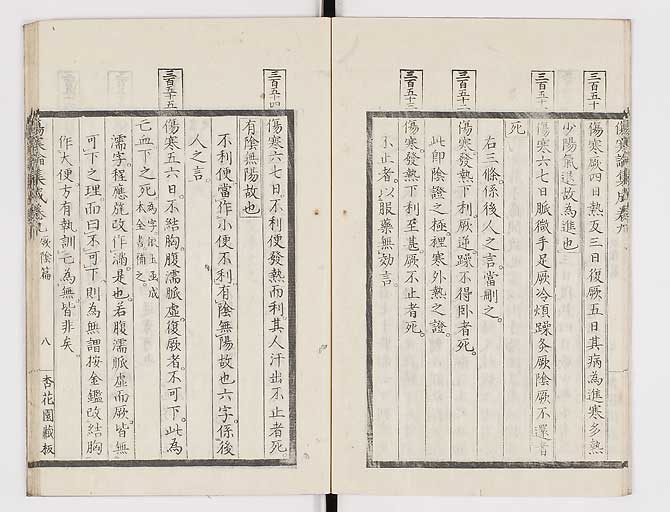 傷寒論集成卷九
三百五十
傷寒厥四日熱反三日復厥五日其病為進寒多熱
少陽氣退故為進也
三百五十一
傷寒六七日脈微手足厥冷煩躁灸厥陰厥不還者
死
右三條係後人之言。當刪之。
三百五十二
傷寒發熱下利厥逆躁不得臥者死。
此即陰證之極裡寒外熱之證。
三百五十三
傷寒發熱下利至甚厥不止者死。
不止者。以服藥無効言。
三百五十四
傷寒六七日不利便發熱而利。其人汗出不止者死。
有陰無陽故也
不利便當作小便不利。有陰無陽故也六字。係後
人之言。
三百五十五
傷寒五六日不結胸。腹濡脈虛。復厥者。不可下。此為
亡血下之死
為字。依玉函成
本全書。補之。
濡字。程應旄改作滿是也。若腹濡脈虛而厥。皆無
可下之理。而曰不可下。則為無謂按金鑑改結胸
作大便方有執訓亡為無皆非矣。
傷寒論集成卷九
厥陰篇
八
杏花園藏板